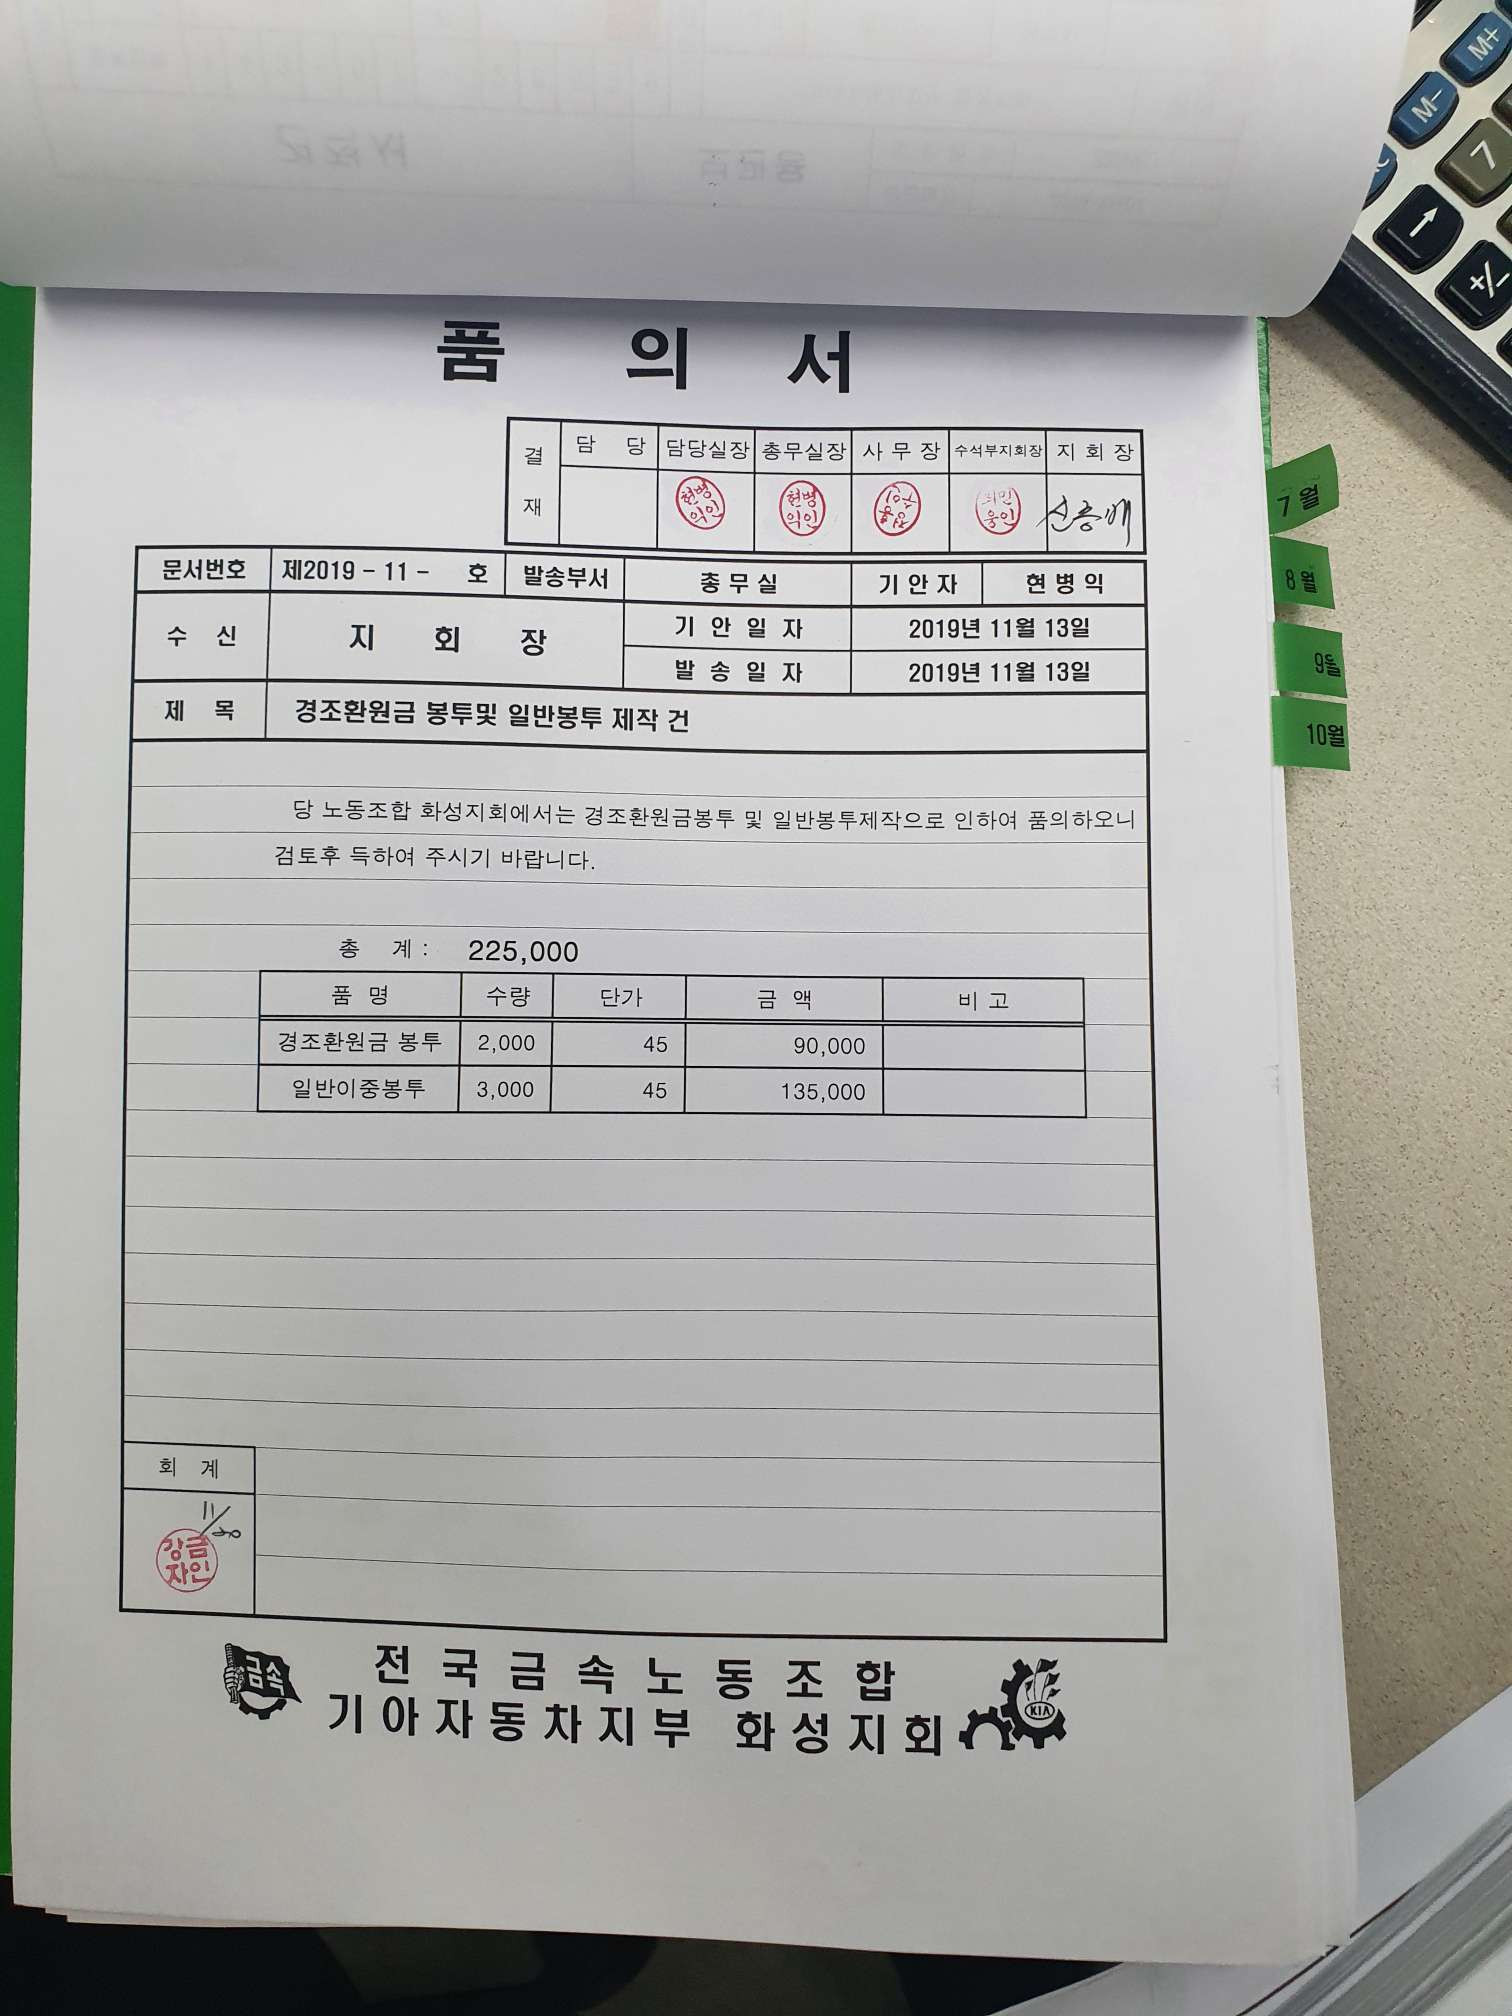 M+
M-
7
+/-
품 의 서
결 재
담 당 담당실장 총무실장 사 무 장 수석부지회장 지 회 장
현병 익인 현병 익인
문서번호 제2019 - 11 - 호 발송부서 총 무 실 기 안 자 현 병 익
수 신 지 회 장 기 안 일 자 2019년 11월 13일
발 송 일 자 2019년 11월 13일
제 목 경조환원금 봉투및 일반봉투 제작 건
당 노동조합 화성지회에서는 경조환원금봉투 및 일반봉투제작으로 인하여 품의하오니
검토후 득하여 주시기 바랍니다.
총 계 : 225,000
품 명 수량 단가 금 액 비 고
경조환원금 봉투 2,000 45 90,000
일반이중봉투 3,000 45 135,000
회 계
11/20
강금
자인
금속
전국금속노동조합
기아자동차지부 화성지회
KIA
7월
8월
9월
10월